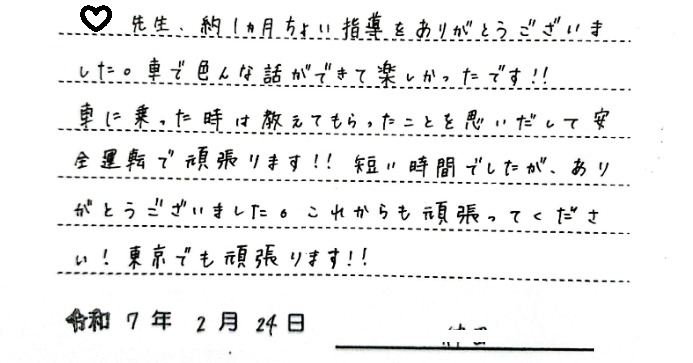 ♡ 先生、約1ヵ月ちょい指導をありがとうございま
した。車で色んな話ができて楽しかったです!!
車に乗った時は教えてもらったことを思いだして安
全運転で頑張ります!! 短い時間でしたが、あり
がとうございました。これからも頑張ってくださ
い!東京でも頑張ります!!
令和 7 年 2 月 24 日